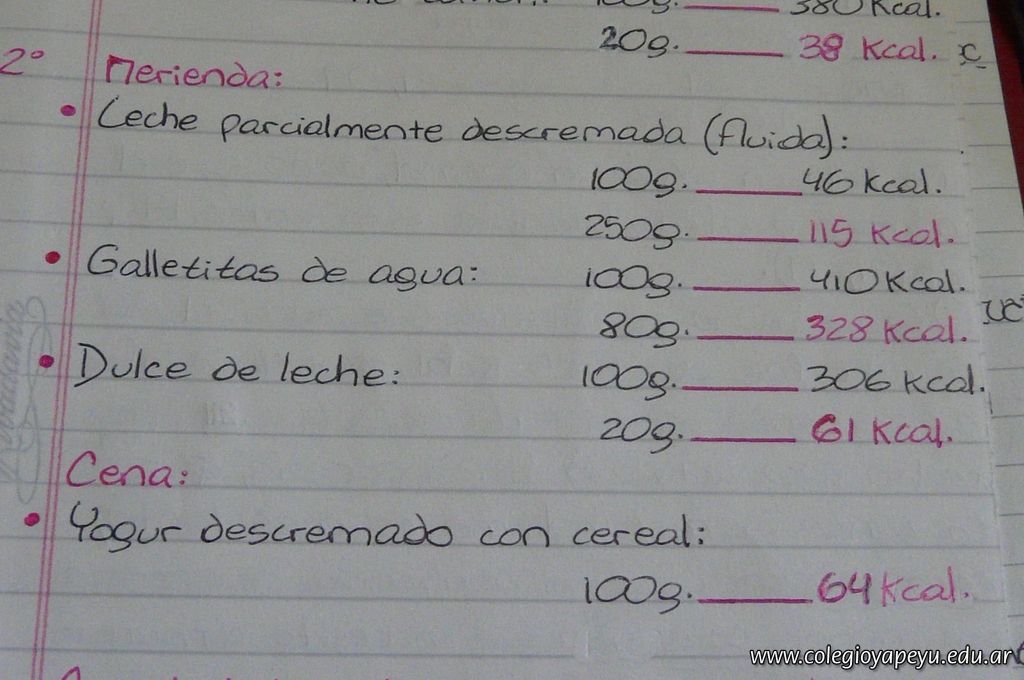 380 Kcal.
20g. 38 Kcal.
2° Merienda:
• Leche parcialmente descremada (fluida):
100g. 46 Kcal.
250g. 115 Kcal.
• Galletitas de agua: 100g. 410 Kcal.
80g. 328 Kcal.
• Dulce de leche: 100g. 306 Kcal.
20g. 61 Kcal.
Cena:
• Yogur descremado con cereal:
100g. 64 Kcal.
www.colegioyapeyu.edu.ar